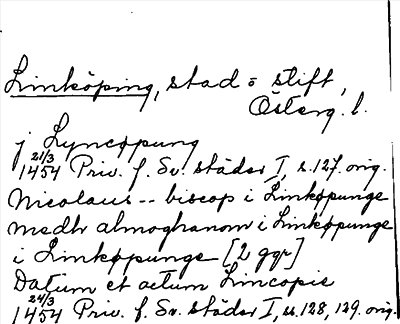 Linköping, stad o stift,
Österg. l.
j Lyncøpung
21/3 1454 Priv. f. Sv. städer I, s.127. orig.
Nicolaus -- biscop i Linkøpunge
medh almoghanom i Linkøpunge
i Linkøpunge [2 ggr]
Datum et actum Lincopie
24/3 1454 Priv. f. Sv. städer I, s.128, 129. orig.